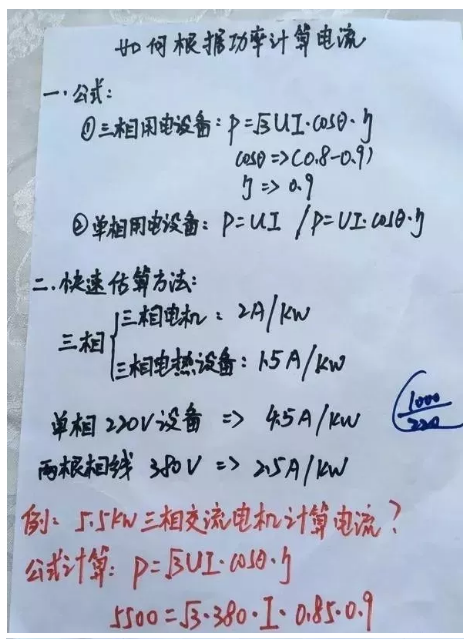 如何根据功率计算电流
一.公式:
①三相用电设备: P=√3UI·cosθ·η
cosθ=>(0.8-0.9)
η=>0.9
②单相用电设备: P=UI /P=UI·cosθ·η
二.快速估算方法:
三相电机: 2A/KW
三相
三相电热设备: 1.5A/KW
单相220V设备 => 4.5A/KW
1000
220
两根相线 380V => 2.5A/KW
例: 5.5KW三相交流电机计算电流?
公式计算: P=√3UI·cosθ·η
5500=√3·380·I·0.85·0.9